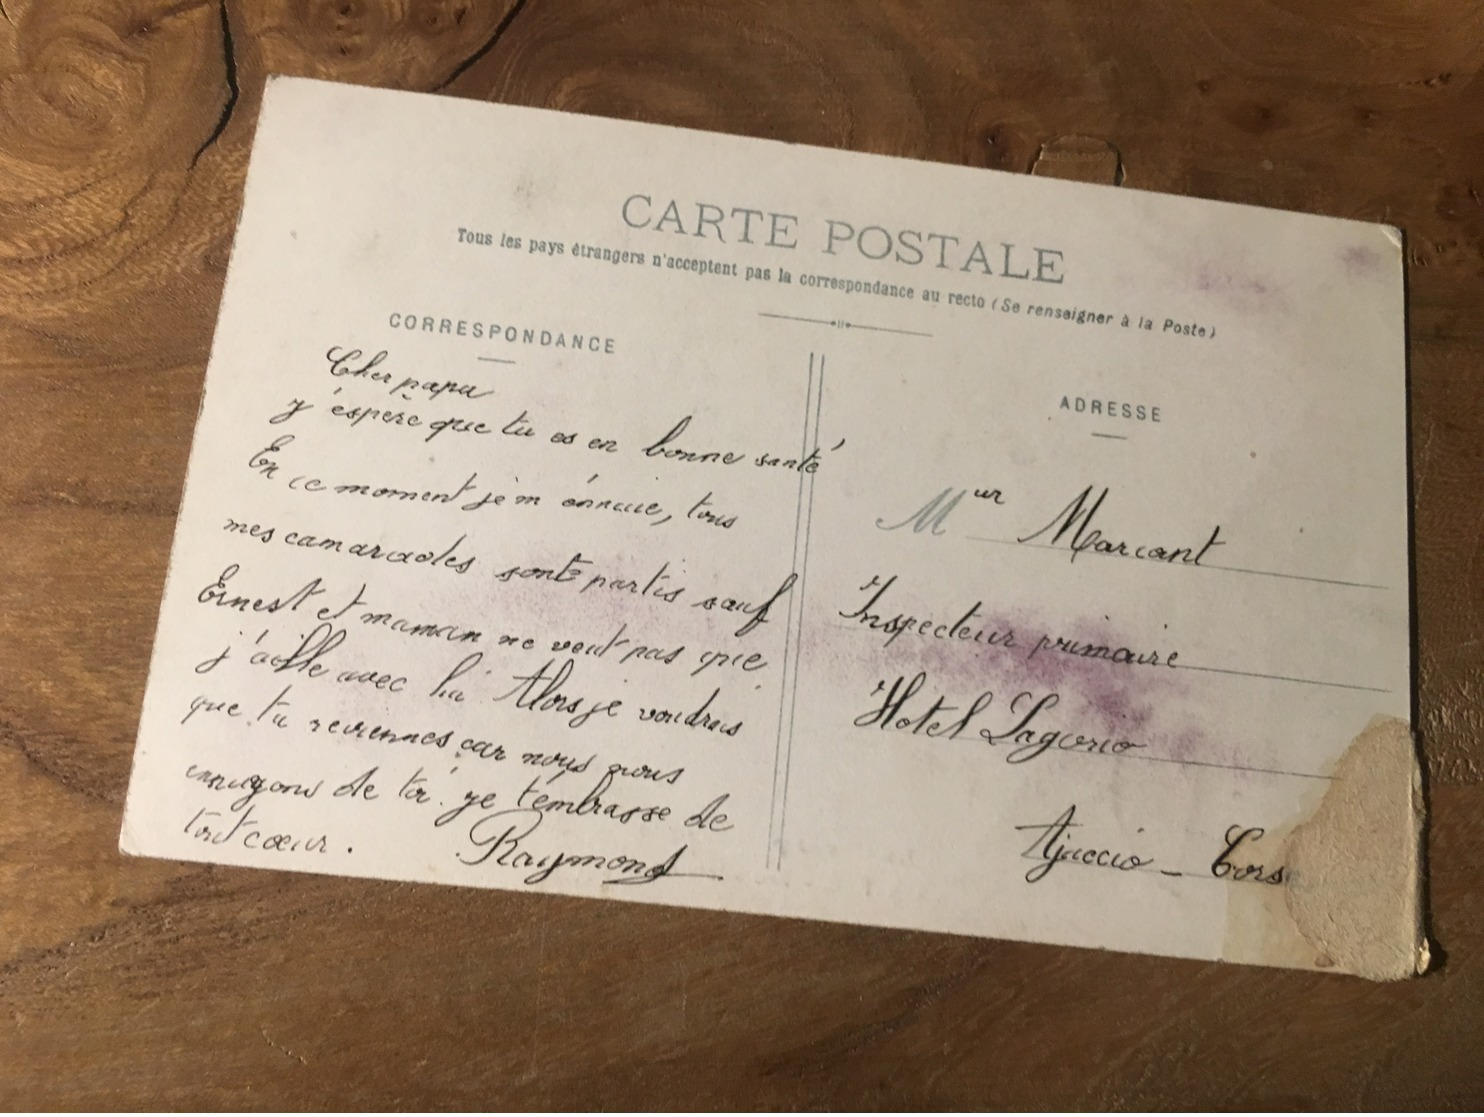 CARTE POSTALE
Tous les pays étrangers n'acceptent pas la correspondance au recto (Se renseigner à la Poste)
CORRESPONDANCE
Cher papa
j'éspère que tu es en bonne santé
En ce moment je m énnuie, tous
mes camarades sont partis sauf
Ernest et maman ne veut pas que
j'aille avec lui Alors je voudrais
que tu reviennes car nous nous
ennuyons de toi. je t'embrasse de
tout cœur.
Raymond
ADRESSE
Mur Marcant
Inspecteur primaire
Hotel Lagorio
Ajaccio - Cors